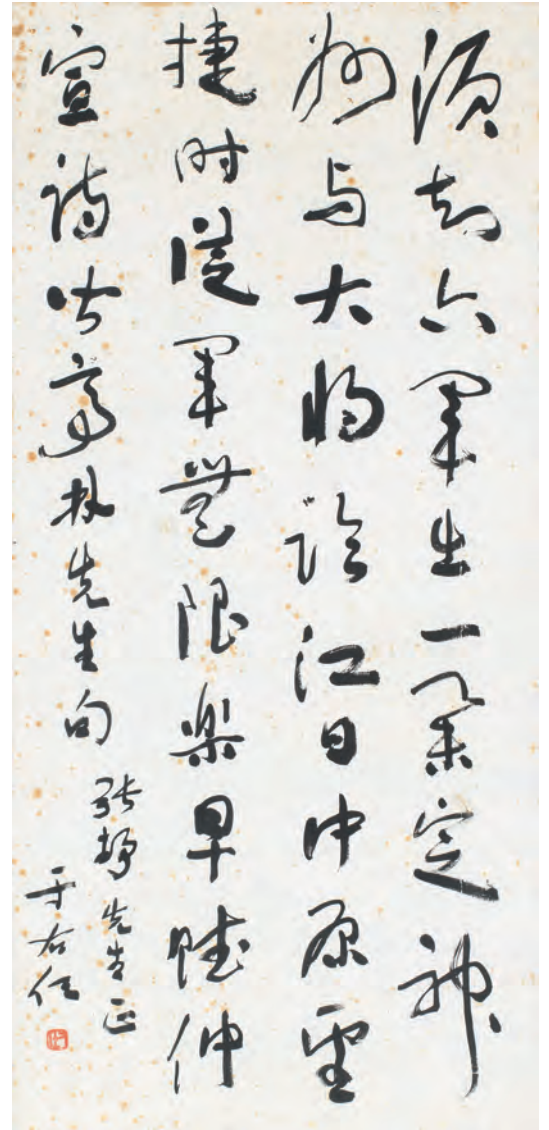 須知六軍出一舉定神
州与大將臨江日中原望
捷时從軍無限樂早賦仲
宣詩皆亭林先生句
張靜先生正
于右任